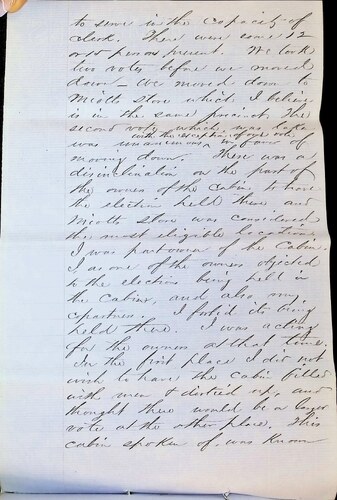 to serve in the capacity of
clerk. There were some 12
or 15 persons present. We took
his vote before we moved
down – We moved down to
Micotts Store which I believe
is in the same precinct. The
second vote which was take
with the exception of one vote
was unanimous in favor of
moving down. There was a
disinclination on the part of
the owners of the cabin to have
the election held there and
Micotts Store was considered
the most eligible location.
I was part owner of the Cabin.
I as one of the owners objected
to the election being held in
the Cabin, and also my
partner. I forbid its being
held there. I was acting
for the owners at that time.
In the first place I did not
wish to have the cabin filled
with men & dirtied up, and
thought there would be a larger
vote at the other place. This
cabin spoken of was known